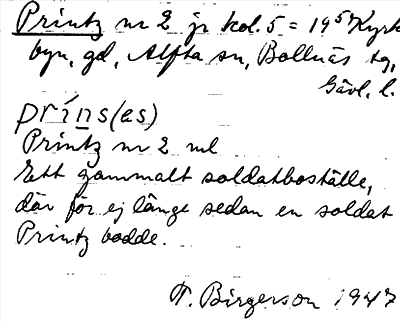 Printz nr 2 jr kol. 5 = 19⁵ Kyrk
byn, gd, Alfta sn, Bollnäs tg,
Gävl. l.
prins(as)
Printz nr 2 ml
Ett gammalt soldatboställe,
där för ej länge sedan en soldat
Printz bodde.
F. Birgerson 1947